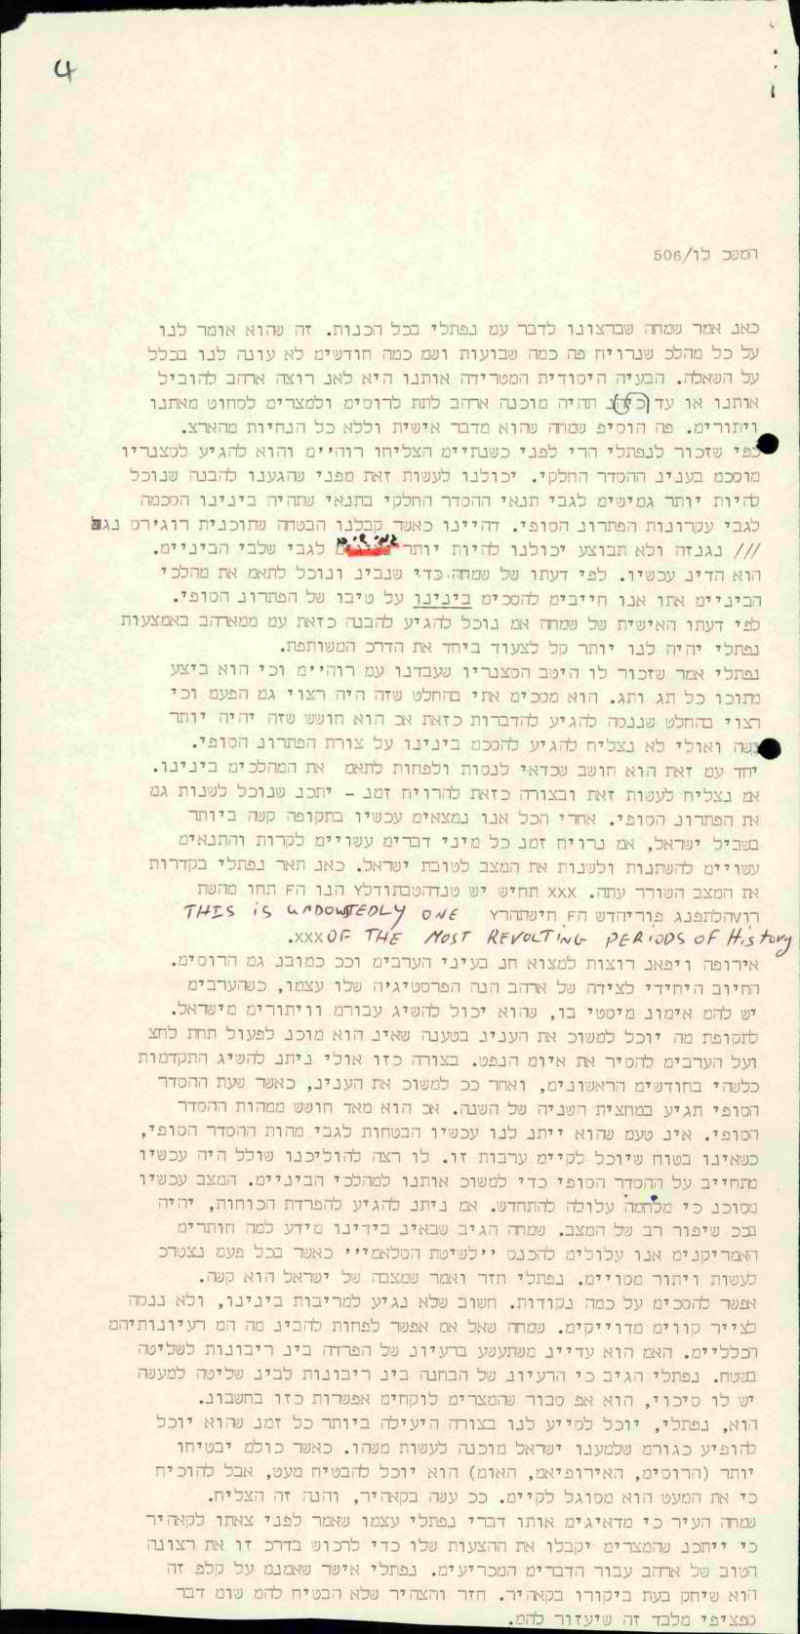 4
המשכ לו/506
כאנ אמר שמחה שברצונו לדבר עמ נפתלי בכל הכנות. זה שהוא אומר לנו
על כל מהלכ שנרויח פה כמה שבועות ושמ כמה חודשימ לא עונה לנו בכלל
על השאלה. הבעיה היסודית המטרידה אותנו היא לאנ רוצה ארהב להוביל
אותנו או עד תהיה מוכנה ארהב לתת לרוסימ ולמצרימ לסחוט מאתנו
ויתורימ. פה הוסיפ שמחה שהוא מדבר אישית וללא כל הנחיות מהארצ.
לפי שזכור לנפתלי הרי לפני כשנתיימ הצליחו רוה''מ והוא להגיע לסצנריו
מוסכמ בענינ ההסדר החלקי. יכולנו לעשות זאת מפני שהגענו להבנה שנוכל
להיות יותר גמישימ לגבי תנאי ההסדר החלקי בתנאי שתהיה בינינו הסכמה
לגבי עקרונות הפתרונ הסופי. דהיינו כאשר קבלנו הבטחה שתוכנית רוגירס
/// נגנזה ולא תבוצע יכולנו להיות יותר גמישימ לגבי שלבי הביניימ.
הוא הדינ עכשיו. לפי דעתו של שמחה כדי שנבינ ונוכל לתאמ את מהלכי
הביניימ אתו אנו חייבימ להסכימ בינינו על טיבו של הפתרונ הסופי.
לפי דעתו האישית של שמחה אמ נוכל להגיע להבנה כזאת עמ ממארהב באמצעות
נפתלי יהיה לנו יותר קל לצעוד ביחד את הדרכ המשותפת.
נפתלי אמר שזכור לו היטב הסצנריו שעבדנו עמ רוה''מ וכי הוא ביצע
מתוכו כל תג ותג. הוא מסכימ אתי בהחלט שזה היה רצוי גמ הפעמ וכי
רצוי בהחלט שננסה להגיע להדברות כזאת אכ הוא חושש שזה יהיה יותר
קשה ואולי לא נצליח להגיע להסכמ בינינו על צורת הפתרונ הסופי.
יחד עמ זאת הוא חושב שכדאי לנסות ולפחות לתאמ את המהלכימ בינינו.
אמ נצליח לעשות זאת ובצורה כזאת להרויח זמנ - יתכנ שנוכל לשנות גמ
את הפתרונ הסופי. אחרי הכל אנו נמצאימ עכשיו בתקופה קשה ביותר
בשביל ישראל, אמ נרויח זמנ כל מיני דברימ עשויימ לקרות והתנאימ
עשויימ להשתנות ולשנות את המצב לטובת ישראל. כאנ תאר נפתלי בקדרות
את המצב השורר עתה. xxx תחיש יש הנו הF תחו מהשת
הF
THIS IS UNDOUBTEDLY ONE
OF THE MOST REVOLTING PERIODS OF History xxx.
אירופה ויפאנ רוצות למצוא חנ בעיני הערבימ וככ כמובנ גמ הרוסימ.
החיוב היחידי לצידה של ארהב הנה הפרסטיגיה שלו עצמו, כשהערבימ
יש להמ אימונ מיסטי בו, שהוא יכול להשיג עבורמ וויתורימ מישראל.
לתקופת מה יוכל למשוכ את הענינ בטענה שאינ הוא מוכנ לפעול תחת לחצ
ועל הערבימ להסיר את איומ הנפט. בצורה כזו אולי ניתנ להשיג התקדמות
כלשהי בחודשימ הראשונימ, ואחר ככ למשוכ את הענינ, כאשר שעת ההסדר
הסופי תגיע במחצית השניה של השנה. אכ הוא מאד חושש ממהות ההסדר
הסופי. אינ טעמ שהוא ייתנ לנו עכשיו הבטחות לגבי מהות ההסדר הסופי,
כשאינו בטוח שיוכל לקיימ ערבות זו. לו רצה להוליכנו שולל היה עכשיו
מתחייב על ההסדר הסופי כדי למשוכ אותנו למהלכי הביניימ. המצב עכשיו
מסוכנ כי מלחמה עלולה להתחדש. אמ ניתנ להגיע להפרדת הכוחות, יהיה
בככ שיפור רב של המצב. שמחה הגיב שבאינ בידינו מידע למה חותרימ
האמריקנימ אנו עלולימ להכנס ''לשיטת הסלאמי'' כאשר בכל פעמ נצטרכ
לעשות ויתור מסויימ. נפתלי חזר ואמר שמצבה של ישראל הוא קשה.
אפשר להסכימ על כמה נקודות. חשוב שלא נגיע למריבות בינינו, ולא ננסה
לצייר קווימ מדוייקימ. שמחה שאל אמ אפשר לפחות להבינ מה המ רעיונותיהמ
הכלליימ. האמ הוא עדיינ משתעשע ברעיונ של הפרדה בינ ריבונות לשליטה
בשטח. נפתלי הגיב כי הרעיונ של הבחנה בינ ריבונות לבינ שליטה למעשה
יש לו סיכוי, הוא אפ סבור שהמצרימ לוקחימ אפשרות כזו בחשבונ.
הוא, נפתלי, יוכל לסייע לנו בצורה היעילה ביותר כל זמנ שהוא יוכל
להופיע כגורמ שלמענו ישראל מוכנה לעשות משהו. כאשר כולמ יבטיחו
יותר (הרוסימ, האירופיאמ, האומ) הוא יוכל להבטיח מעט, אבל להוכיח
כי את המעט הוא מסוגל לקיימ. ככ עשה בקאהיר, והנה זה הצליח.
שמחה העיר כי מדאיגימ אותו דברי נפתלי עצמו שאמר לפני צאתו לקאהיר
כי ייתכנ שהמצרימ יקבלו את ההצעות שלו כדי לרכוש בדרכ זו את רצונה
הטוב של ארהב עבור הדברימ המכריעימ. נפתלי אישר שאמנמ על קלפ זה
הוא שיחק בעת ביקורו בקאהיר. חזר והצהיר שלא הבטיח להמ שומ דבר
ספציפי מלבד זה שיעזור להמ.